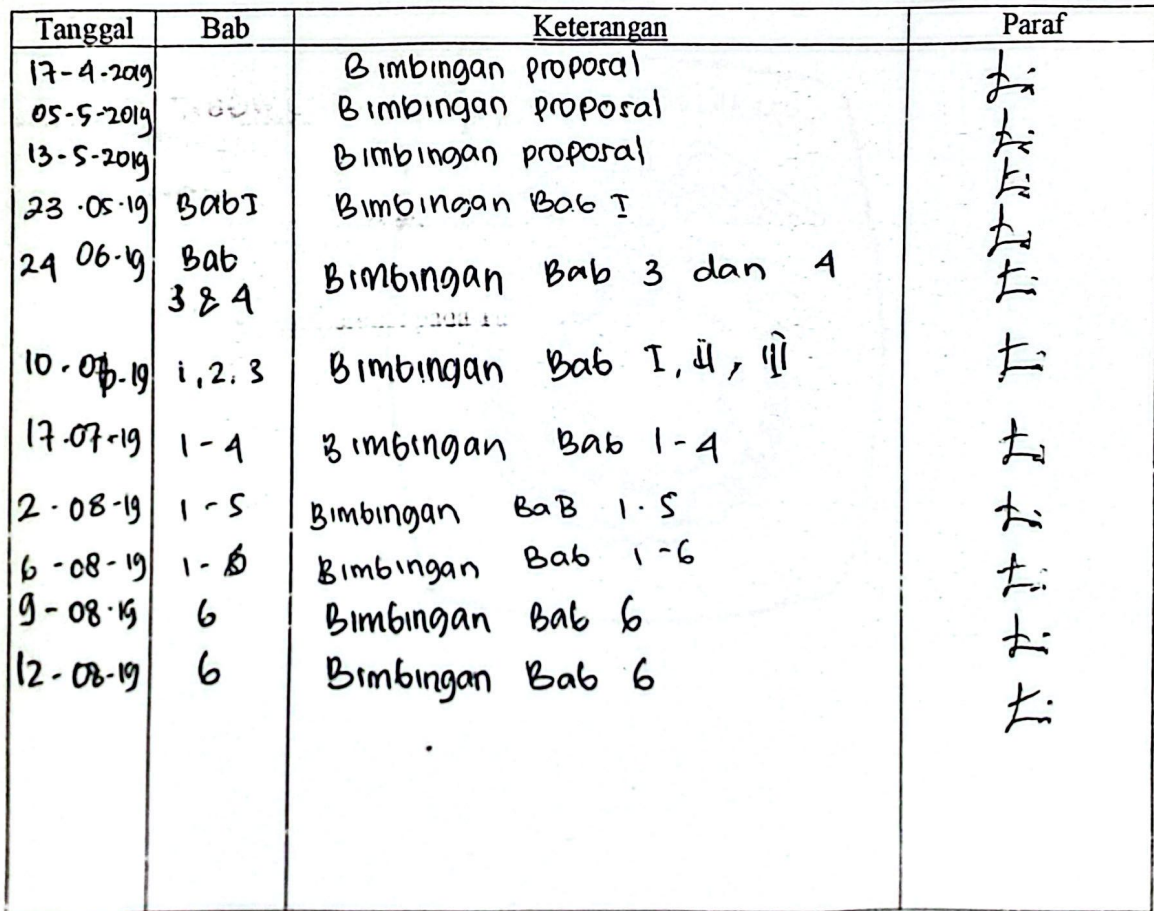 Tanggal Bab Keterangan Paraf
17-4-2019 Bimbingan proposal
05-5-2019 Bimbingan proposal
13-5-2019 Bimbingan proposal
23-05-19 Bab I Bimbingan Bab I
24 06-19 Bab 3 & 4 Bimbingan Bab 3 dan 4
10-07-19 1, 2, 3 Bimbingan Bab I, II, III
17-07-19 1-4 Bimbingan Bab 1-4
2-08-19 1-5 Bimbingan BaB 1-5
6-08-19 1-6 Bimbingan Bab 1-6
9-08-19 6 Bimbingan Bab 6
12-08-19 6 Bimbingan Bab 6